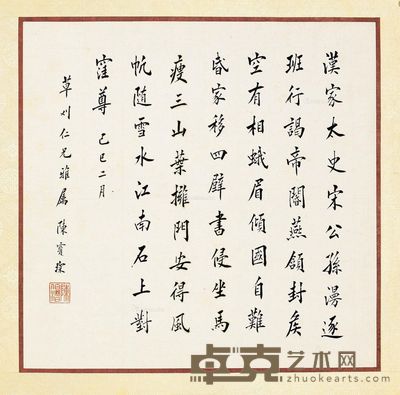 漢家太史宋公孫漫逐
班行謁帝閽燕頷封侯
空有相蛾眉傾國自難
昏家移四壁書侵坐馬
瘦三山葉擁門安得風
帆隨雪水江南石上對
窪尊 己巳二月
仁兄雅屬 陳寶琛
卓克艺术网
zhuokearts.com